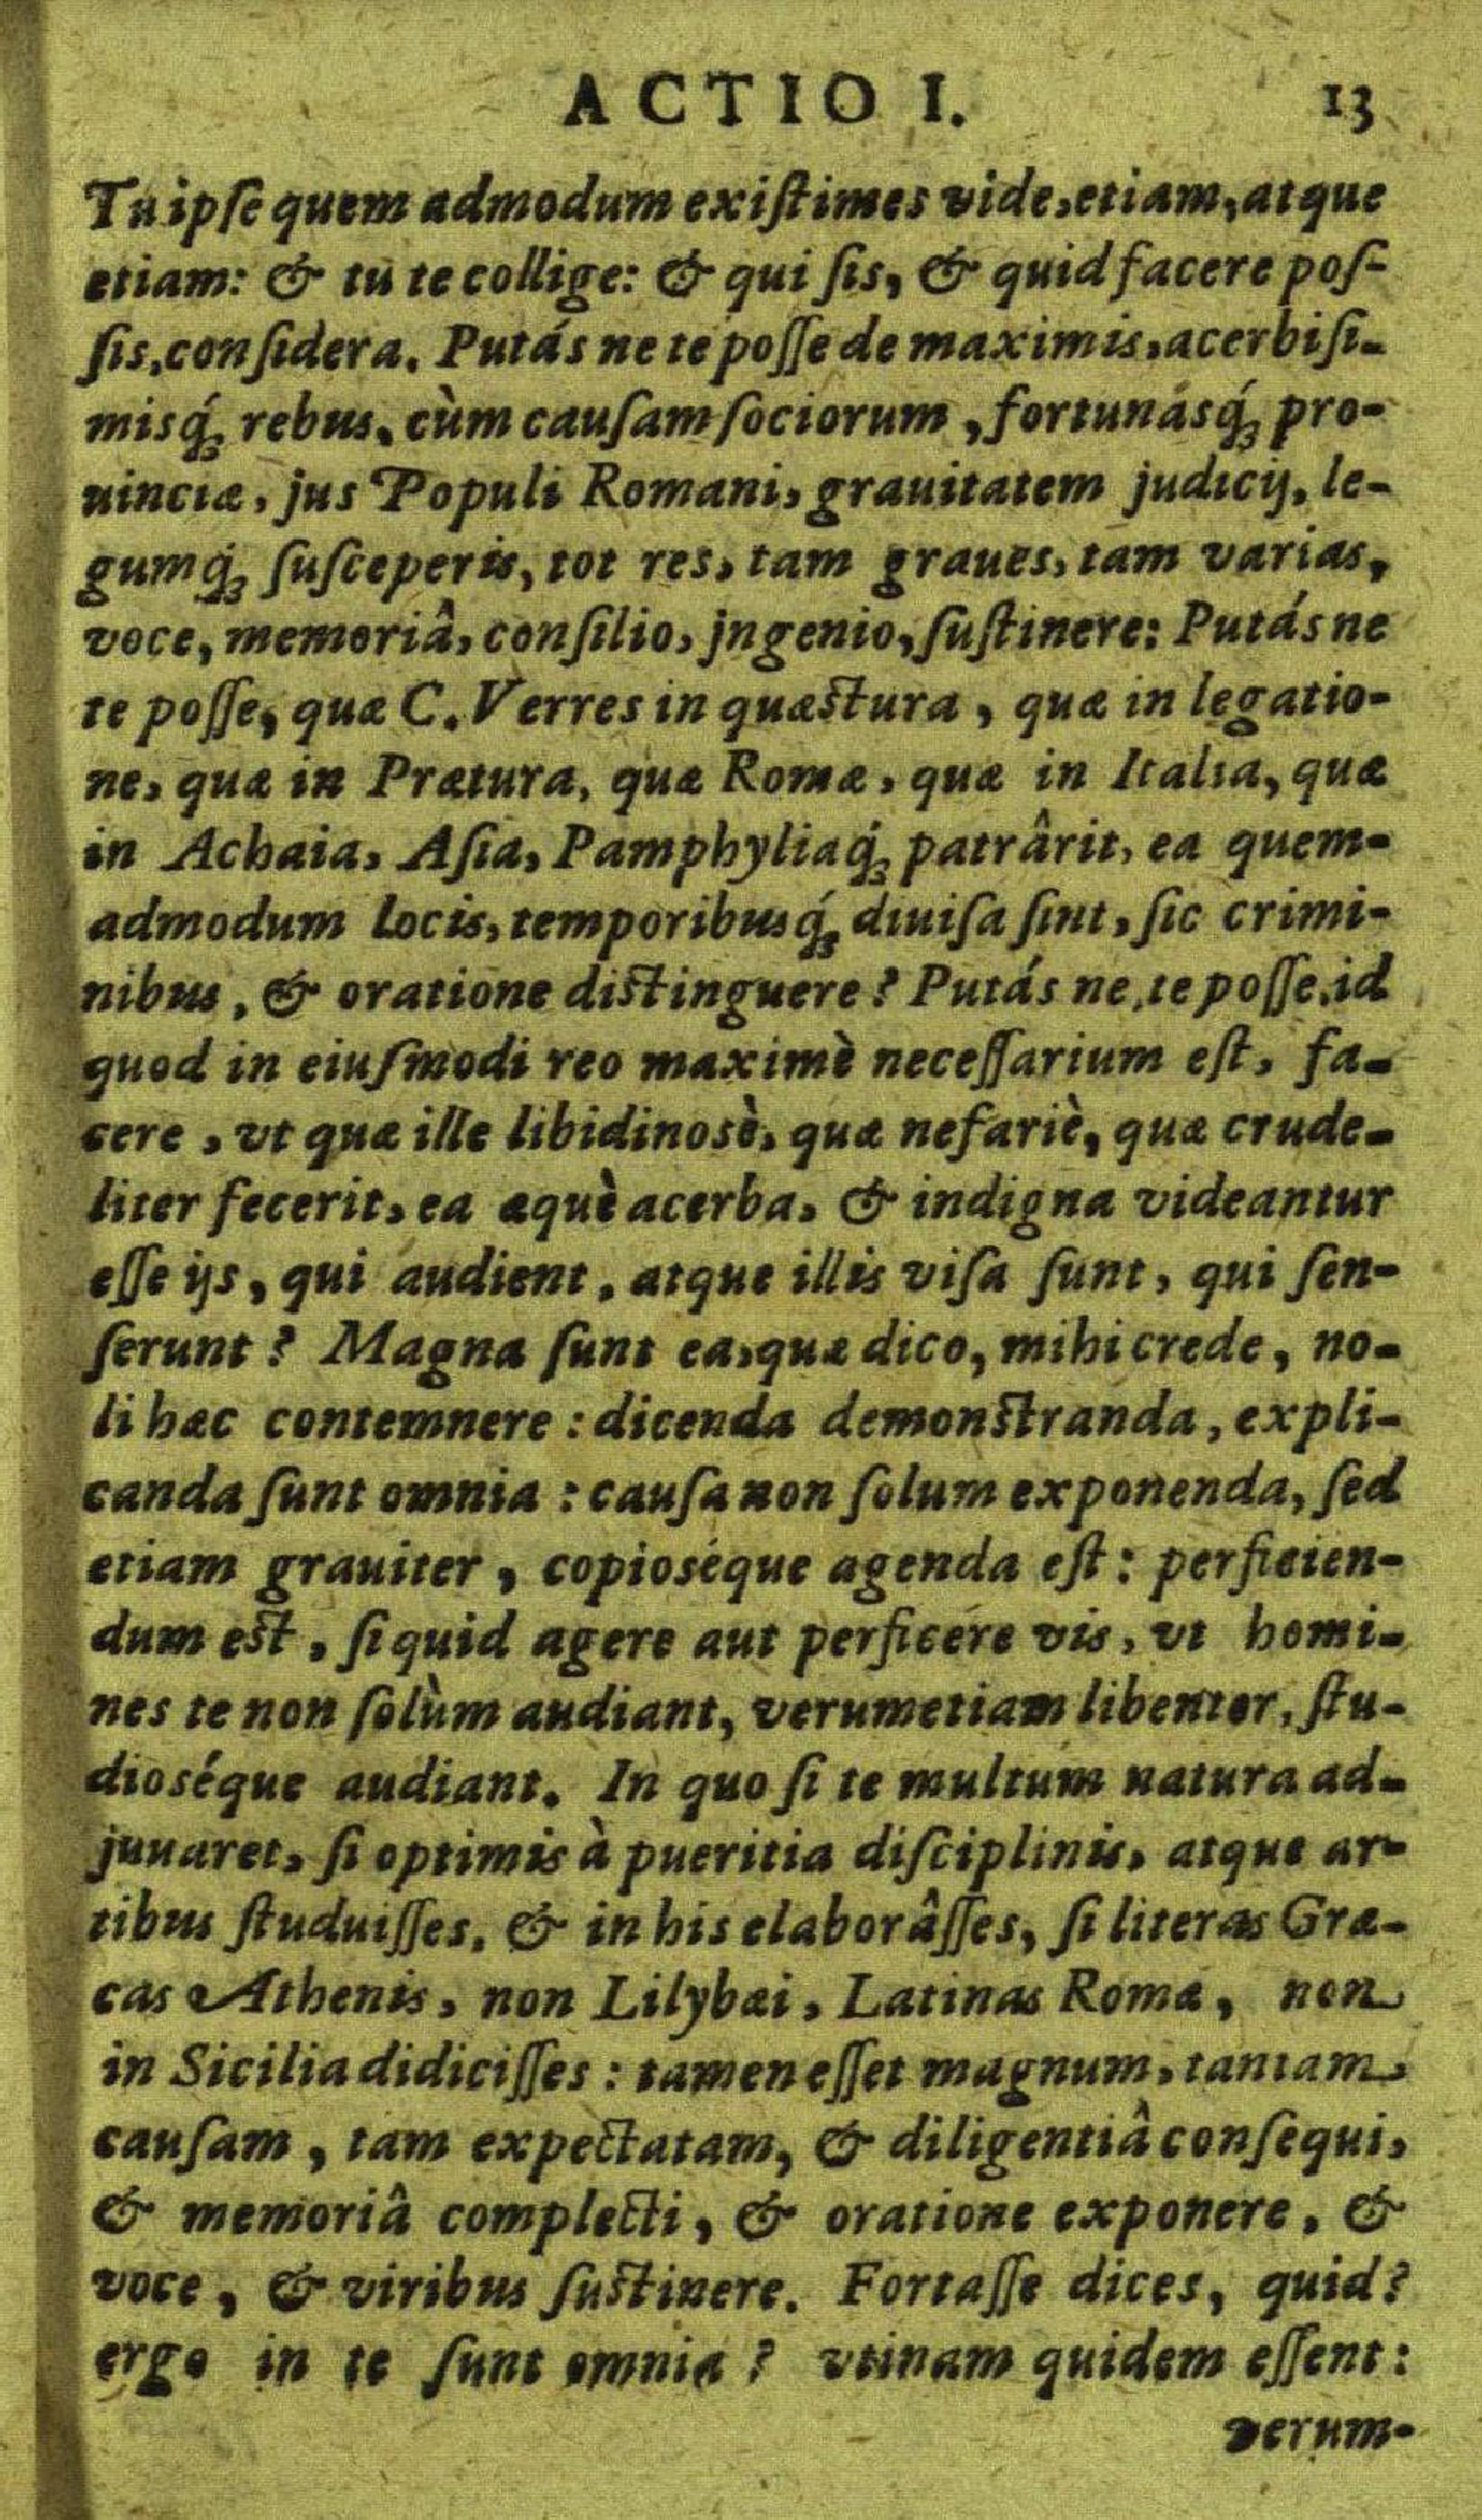 ACTIO I. 13
Tu ipſe quem admodum exiſtimes vide, etiam, atque
etiam: & tu te collige: & qui ſis, & quid facere poſ-
ſis, conſidera. Putás ne te poſſe de maximis, acerbiſi-
misq́; rebus, cùm cauſam ſociorum, fortunásq́; pro-
uinciæ, jus Populi Romani, grauitatem judicij, le-
gumq́; ſuſceperis, tot res, tam graues, tam varias,
voce, memoriâ, conſilio, jngenio, ſuſtinere: Putás ne
te poſſe, quæ C. Verres in quæſtura, quæ in legatio-
ne, quæ in Prætura, quæ Romæ, quæ in Italia, quæ
in Achaia, Aſia, Pamphyliaq́; patrârit, ea quem-
admodum locis, temporibusq́; diuiſa ſint, ſic crimi-
nibus, & oratione diſtinguere? Putás ne, te poſſe, id
quod in eiuſmodi reo maximè neceſſarium eſt, fa-
cere, vt quæ ille libidinosè, quæ nefariè, quæ crude-
liter fecerit, ea æquè acerba, & indigna videantur
eſſe ijs, qui audient, atque illis viſa ſunt, qui ſen-
ſerunt? Magna ſunt ea, quæ dico, mihi crede, no-
li hæc contemnere: dicenda demonſtranda, expli-
canda ſunt omnia: cauſa non ſolum exponenda, ſed
etiam grauiter, copioséque agenda eſt: perficien-
dum eſt, ſi quid agere aut perficere vis, vt homi-
nes te non ſolùm audiant, verumetiam libenter, ſtu-
dioséque audiant. In quo ſi te multum natura ad-
juuaret, ſi optimis à pueritia diſciplinis, atque ar-
tibus ſtuduiſſes, & in his elaborâſſes, ſi literas Græ-
cas Athenis, non Lilybæi, Latinas Romæ, non
in Sicilia didiciſſes: tamen eſſet magnum, tantam
cauſam, tam expectatam, & diligentiâ conſequi,
& memoriâ complecti, & oratione exponere, &
voce, & viribus ſuſtinere. Fortaſſe dices, quid?
ergo in te ſunt omnia? vtinam quidem eſſent:
verum-